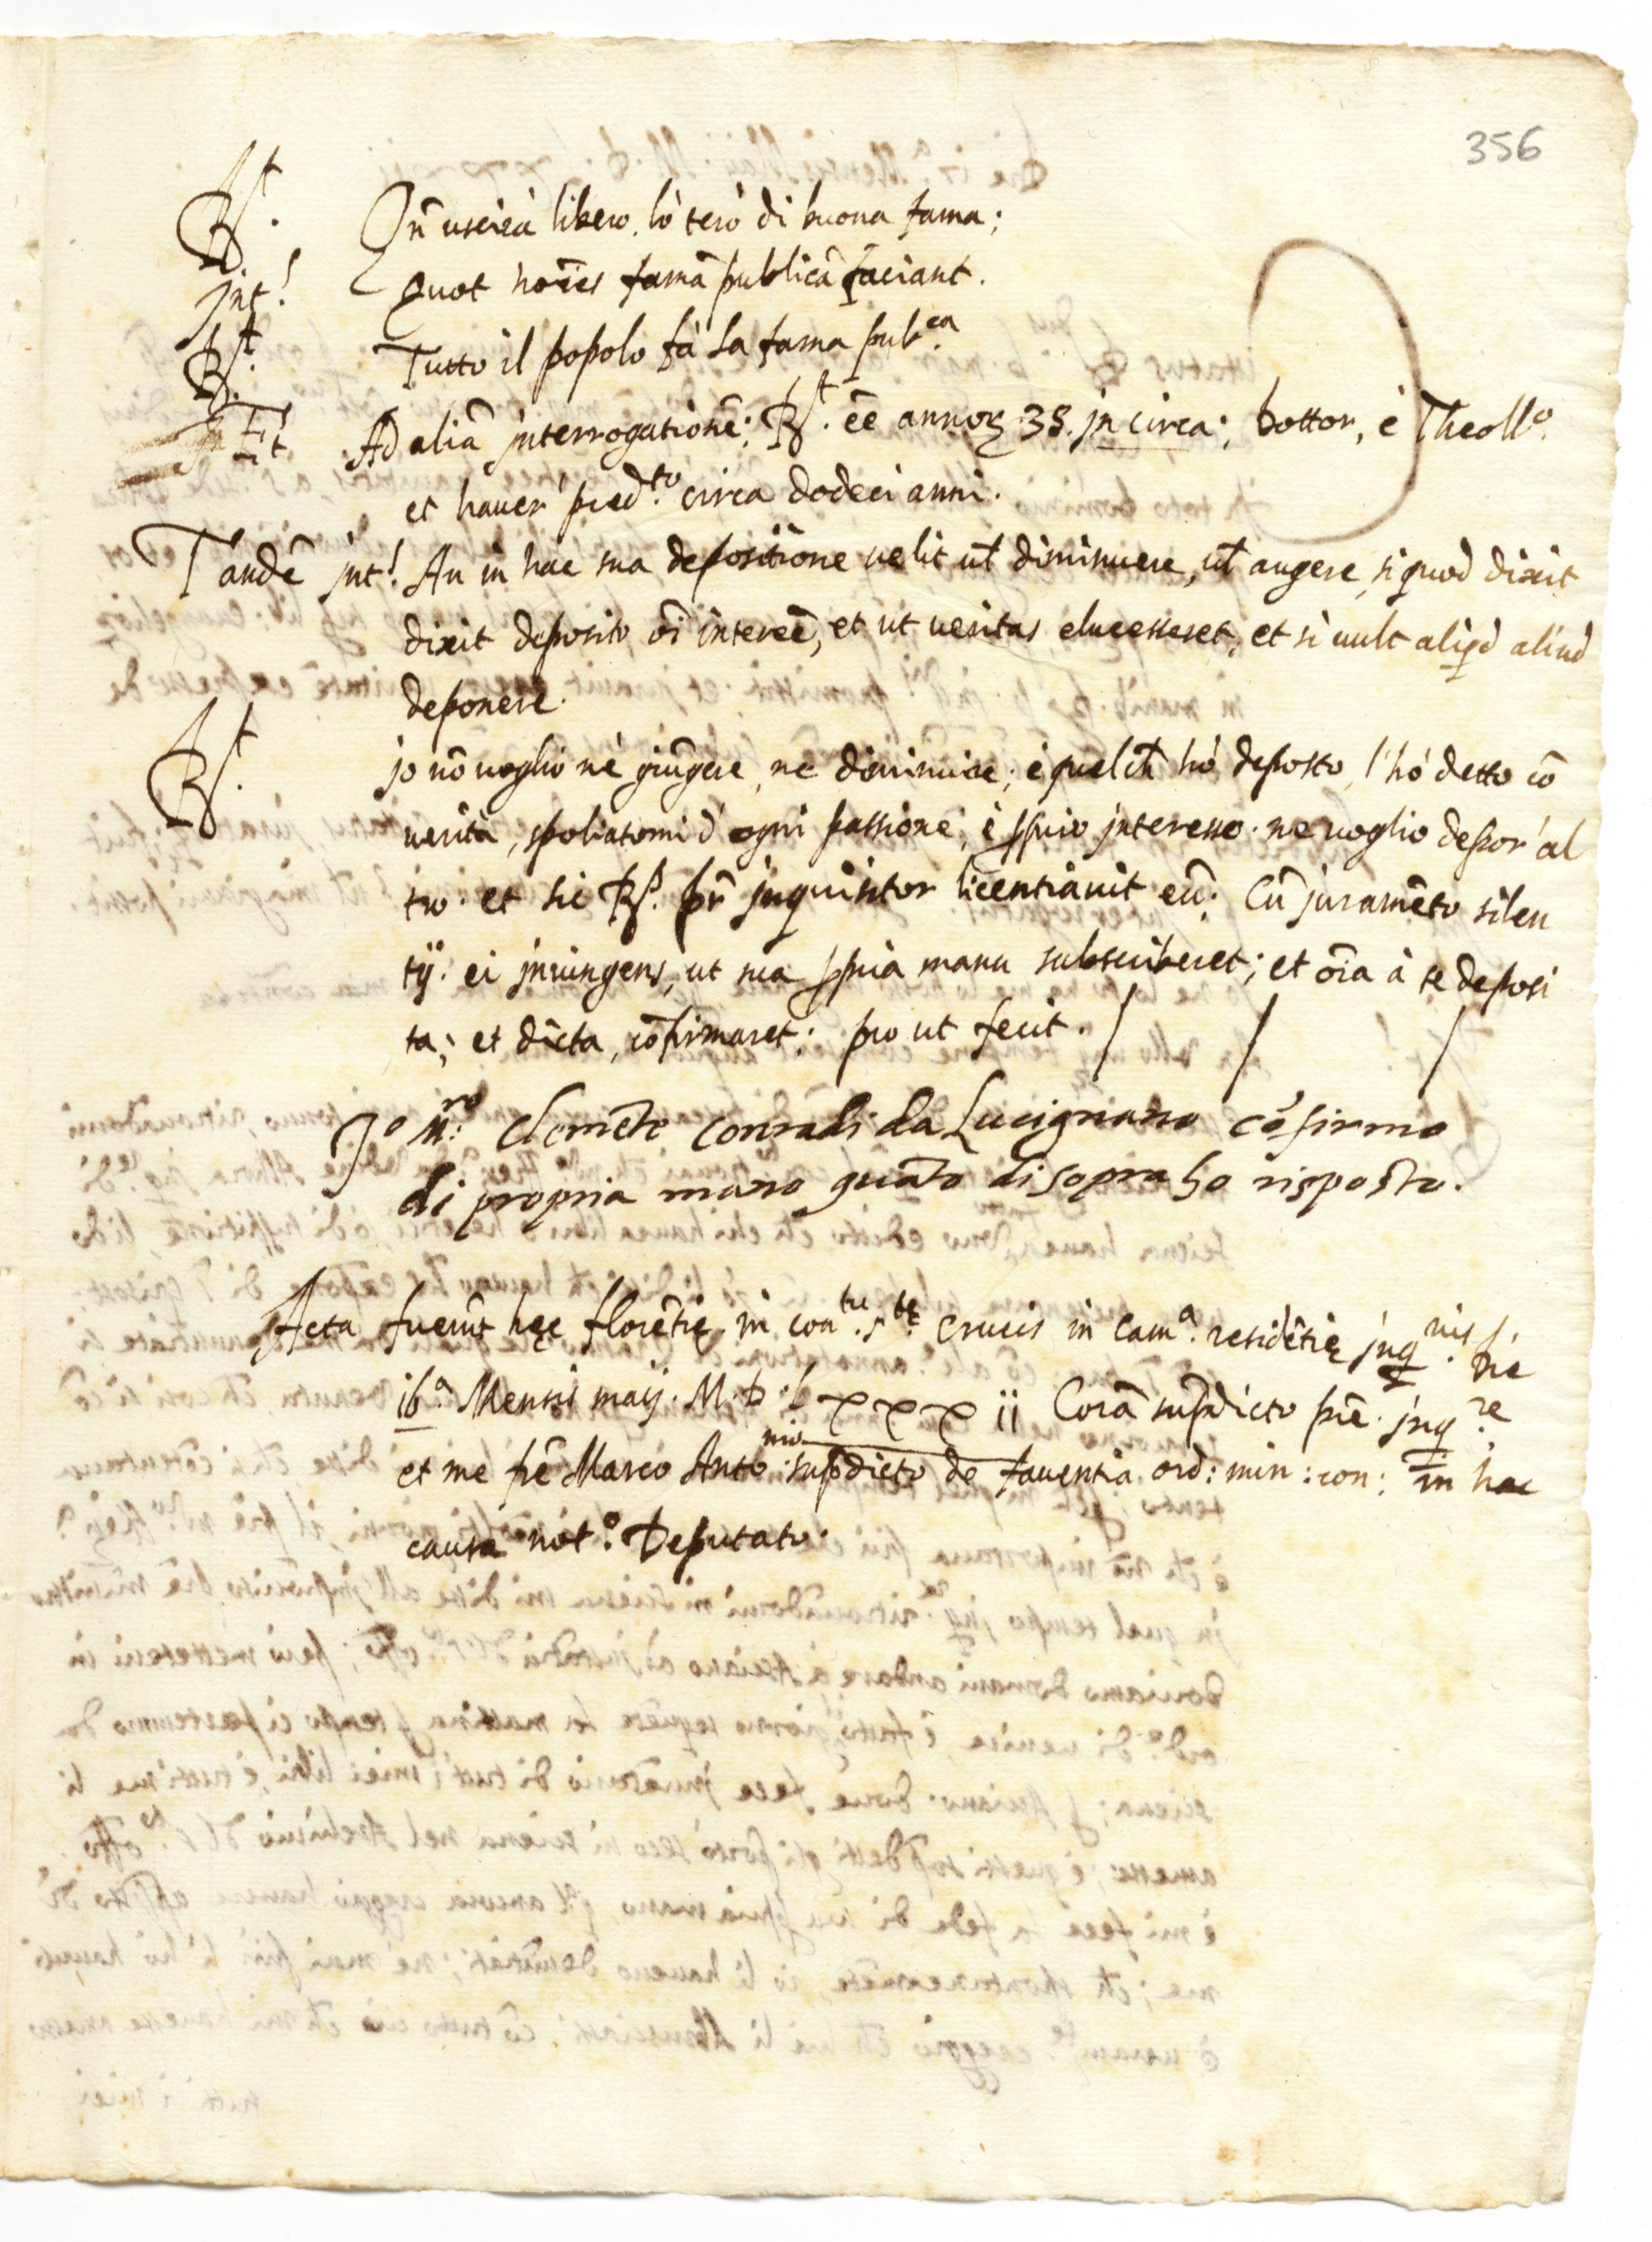 356
Rt. Qn̄ uscirà libero, lò terò di buona fama;
Int! Quot hoīes famā publicā faciant.
Rt. Tutto il popolo fà la fama pub.ca
Int Ad aliā jnterrogationē; Rt. eē annoꝝ 38. jn circa; dottor, è Theollo.
et hauer' pred.to circa dodeci anni.
Tandē jnt! An in hac sua depositione uelit ut̄ diminuere, ut̄ augere, si quod dixit
dixit deposito oī intereē, et ut ueritas elucesseret, et si uult aliqd aliud
deponere.
Rt. jo nō uoglio nè giūgere, ne diminuire; è quel ch̄ hò deposto, l'hò detto cō
uerità, spoliatomi d'ogni passione, è ꝓprio jnteresso. ne uoglio depor' al
tro. et sic Rs. pr̄ jnquisitor licentiauit eū; Cū juramēto silen
tij. ei jniungens, ut sua ꝓpria manu subscriberet; et oīa à se deposi
ta; et dicta, cōfirmaret; pro ut fecit. / / /
Jo M.ro Clemēte Corradi da Lucignano cōfirmo
di propria mano quāto di sopra ho risposto.
Acta fuerūt hęc florētię in con.tu s.tę Crucis in cam.a residētię jnq.nis die
16a Mensis maij. M.D.LXXXII Corā supdicto prē. jnq.re
et me frē Marco Anto.nio supdicto de fauentia ord: min: con: in hac
causa not.o Deputato.